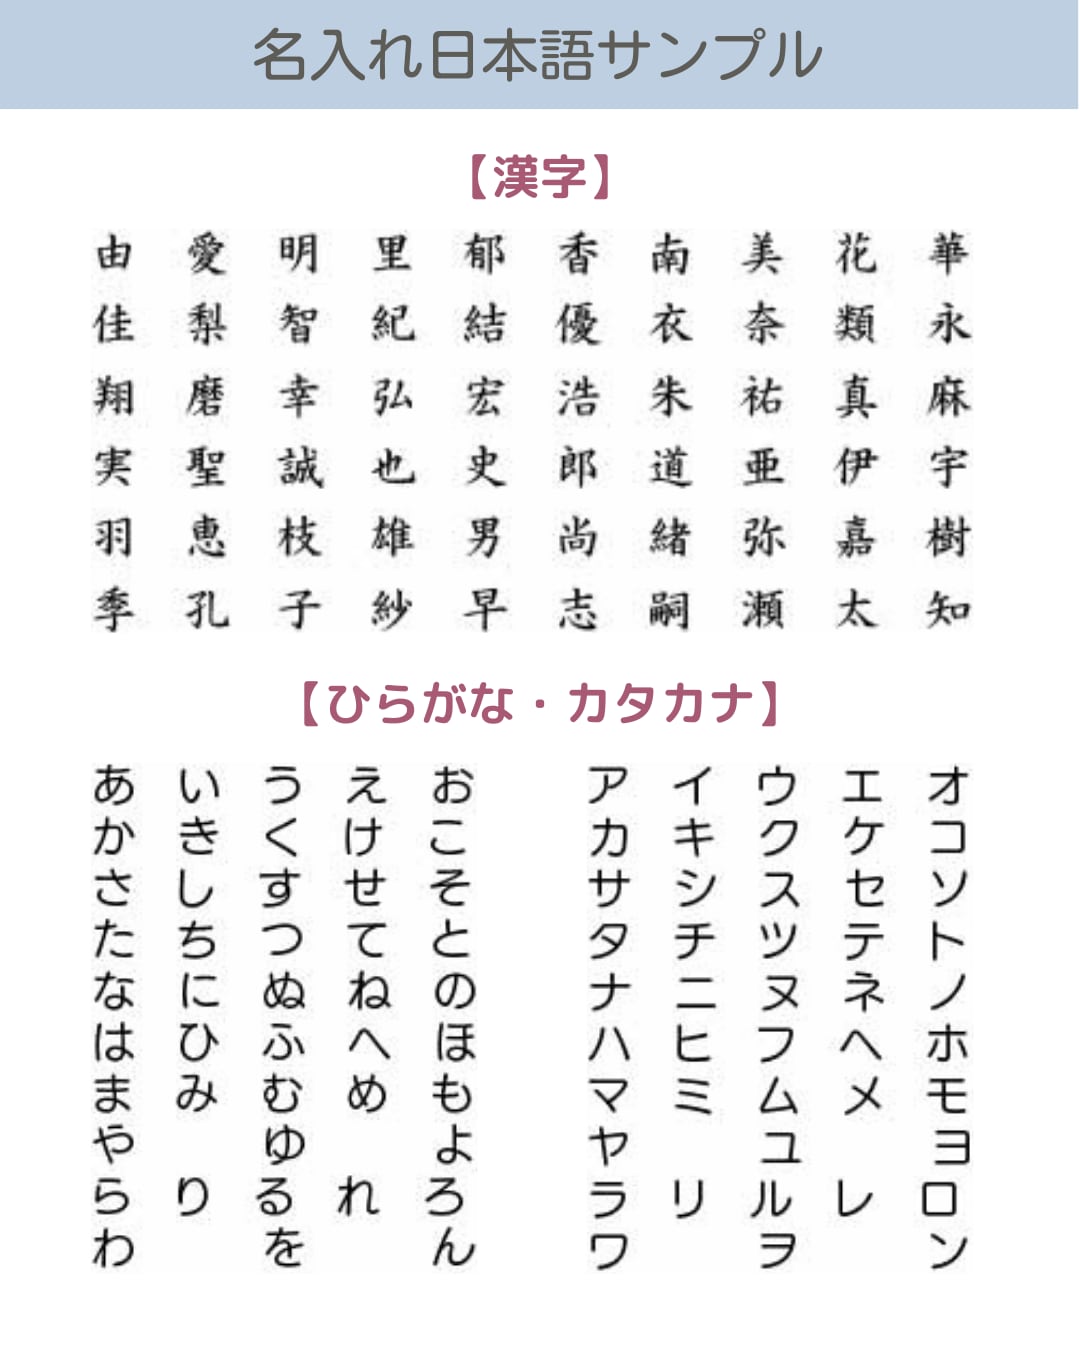 名入れ日本語サンプル
【漢字】
由 愛 明 里 郁 香 南 美 花 華
佳 梨 智 紀 結 優 衣 奈 類 永
翔 磨 幸 弘 宏 浩 朱 祐 真 麻
実 聖 誠 也 史 郎 道 亜 伊 宇
羽 恵 枝 雄 男 尚 緒 弥 嘉 樹
季 孔 子 紗 早 志 嗣 瀬 太 知
【ひらがな・カタカナ】
あ い う え お ア イ ウ エ オ
か き く け こ カ キ ク ケ コ
さ し す せ そ サ シ ス セ ソ
た ち つ て と タ チ ツ テ ト
な に ぬ ね の ナ ニ ヌ ネ ノ
は ひ ふ へ ほ ハ ヒ フ ヘ ホ
ま み む め も マ ミ ム メ モ
や ゆ よ ヤ ユ ヨ
ら り る れ ろ ラ リ ル レ ロ
わ を ん ワ ヲ ン